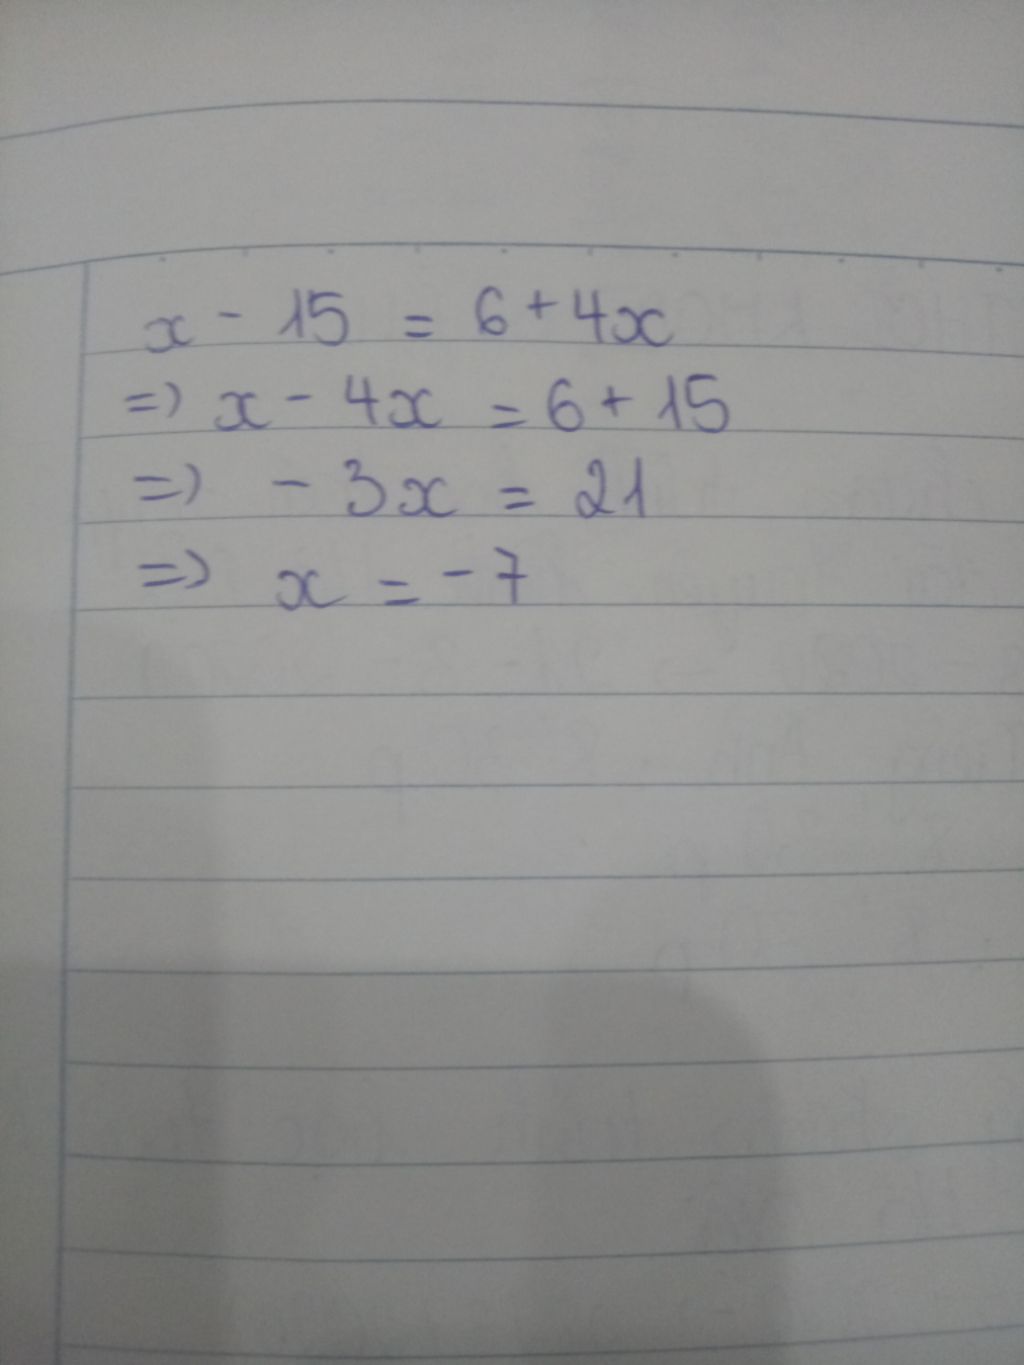 x - 15 = 6 + 4x
=> x - 4x = 6 + 15
=> - 3x = 21
=> x = - 7